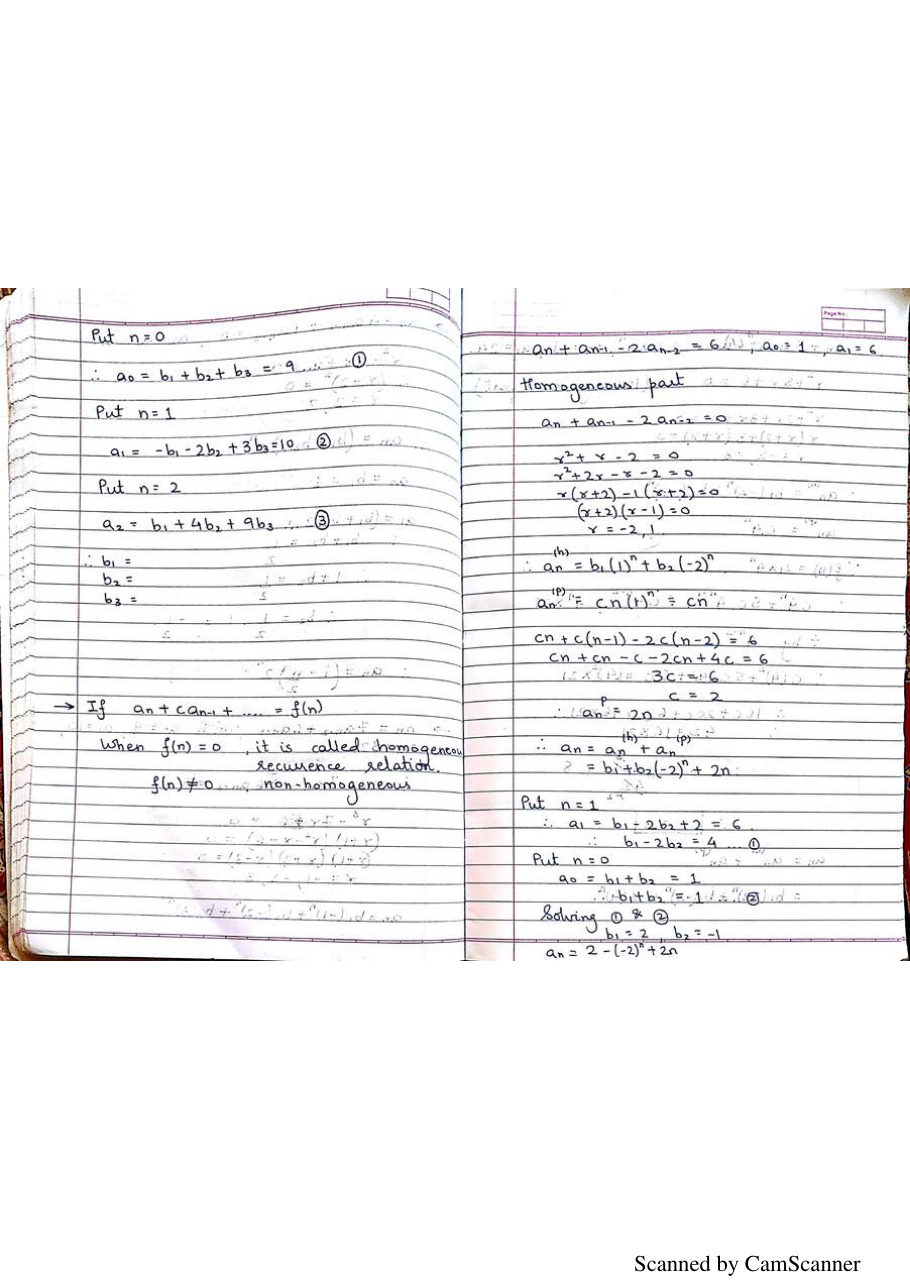 Put n=0
∴ a₀ = b₁ + b₂ + b₃ = 9 .... ①
Put n=1
a₁ = -b₁ - 2b₂ + 3b₃ = 10 ②
Put n= 2
a₂ = b₁ + 4b₂ + 9b₃ .... ③
∴ b₁ =
b₂ =
b₃ =
→ If aₙ + caₙ₋₁ + ..... = f(n)
When f(n) = 0 , it is called homogeneou
recurrence relation.
f(n) ≠ 0 non-homogeneous
Page No.:
aₙ + aₙ₋₁ - 2aₙ₋₂ = 6 , a₀ = 1 , a₁ = 6
Homogeneous part
aₙ + aₙ₋₁ - 2aₙ₋₂ = 0
r² + r - 2 = 0
r² + 2r - r - 2 = 0
r(r+2) - 1(r+2) = 0
(r+2)(r-1) = 0
r = -2, 1
∴ aₙ⁽ʰ⁾ = b₁(1)ⁿ + b₂(-2)ⁿ
aₙ⁽ᵖ⁾ = cn(1)ⁿ = cn
cn + c(n-1) - 2c(n-2) = 6
cn + cn - c - 2cn + 4c = 6
3c = 6
c = 2
∴ aₙᵖ = 2n
∴ aₙ = aₙ⁽ʰ⁾ + aₙ⁽ᵖ⁾
= b₁ + b₂(-2)ⁿ + 2n
Put n = 1
∴ a₁ = b₁ - 2b₂ + 2 = 6
∴ b₁ - 2b₂ = 4 ... ①
Put n = 0
a₀ = b₁ + b₂ = 1
b₁ + b₂ = 1 ②
Solving ① & ②
b₁ = 2 , b₂ = -1
aₙ = 2 - (-2)ⁿ + 2n
Scanned by CamScanner